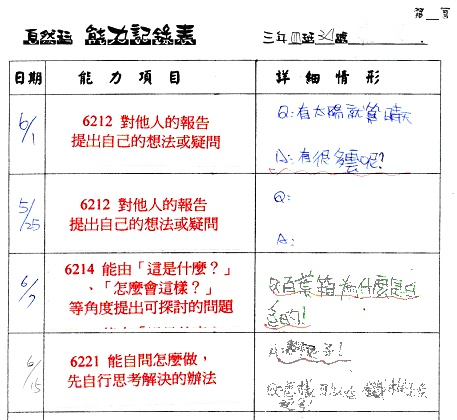 第__頁
自然科 能力記錄表 三年四班34號
日期 能力項目 詳細情形
6/1
6212 對他人的報告
提出自己的想法或疑問
Q:有太陽就算晴天
A:有很多雲呢?
5/25
6212 對他人的報告
提出自己的想法或疑問
Q:
A:
6/7
6214 能由「這是什麼?」
、「怎麼會這樣?」
等角度提出可探討的問題
Q百葉箱為什麼是白
色的!
6/15
6221 能自問怎麼做,
先自行思考解決的辦法